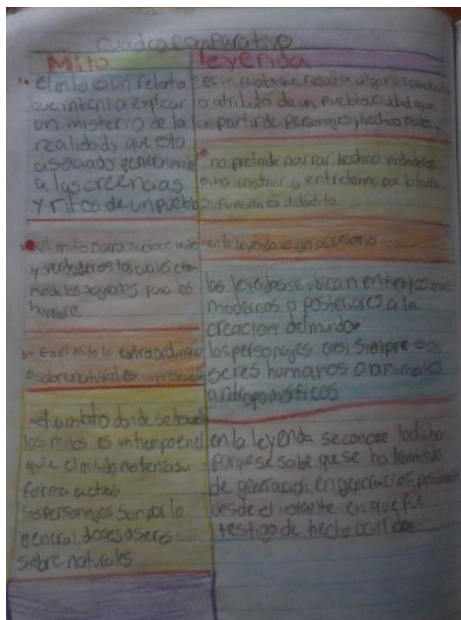 cuadro comparativo
Mito
el mito es un relato
que intenta explicar
un misterio de la
realidad y que esta
asociado
a las creencias
y ritos de un pueblo
el mito narra
y verdaderos los cuales
modelos sagrados para los
hombre
En el mito lo extraordinario
o sobrenatural es
el ambito donde se
los mitos es un tiempo en el
que el mundo no tenia su
forma actual.
los personajes son por lo
general, dioses o seres
sobre naturales
leyenda
es un relato que resulta alguna
o atributo de un pueblo, ciudad
a partir de personajes y hechos
no pretende narrar hechos
sino instruir o entretener, por lo tanto
su funcion es didactica
en la leyenda es un accesorio
las leyendas se ubican en tiempos mas
modernos o posteriores a la
creacion del mundo
los personajes casi siempre son
seres humanos o animales
antropomorficos
en la leyenda se conoce lo dicho
porque se sabe que se ha
de generacion en generacion,
desde el instante en que fue
testigo de hecho ocurridos